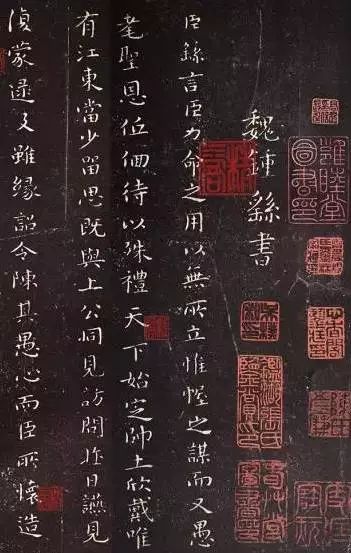 魏鍾繇書
臣繇言臣力命之用以無所立惟幄之謀而又愚
耄聖恩低佪待以殊禮天下始定帥土欣戴唯
有江東當少留思既與上公同見訪問昨日讌見
復蒙逮及雖緣詔令陳其愚心而臣所懷造